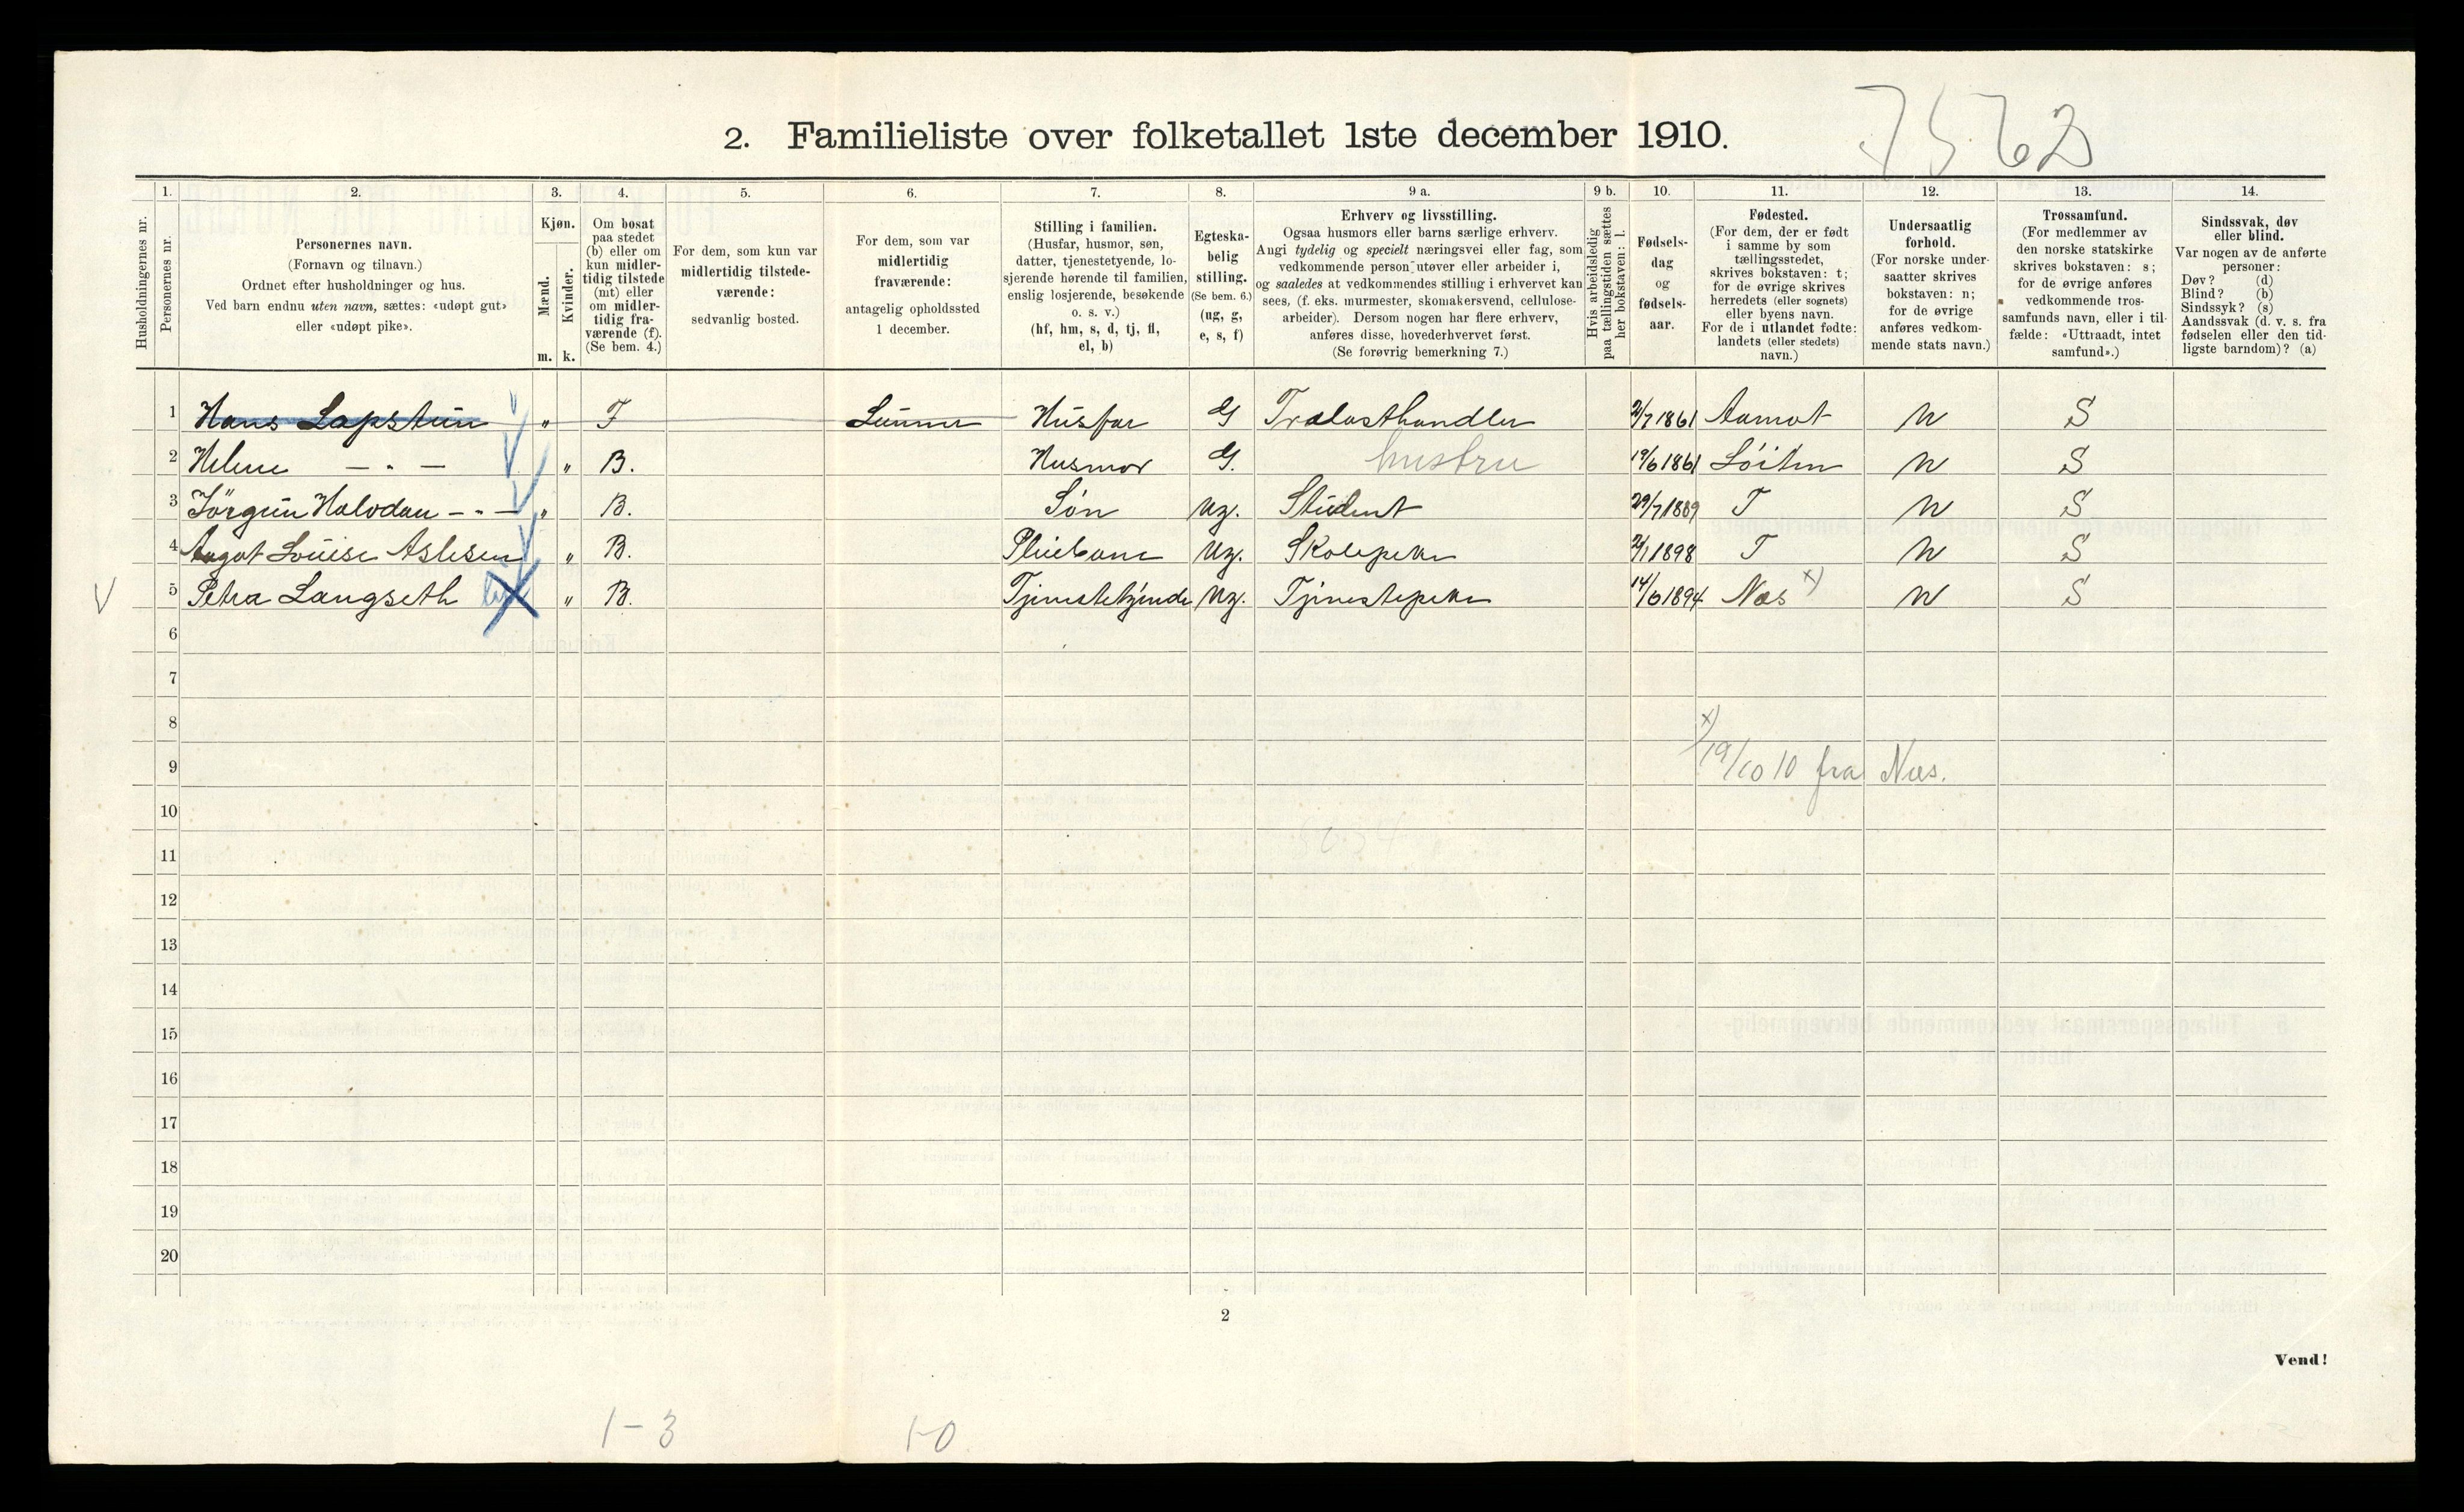 7562
2. Familieliste over folketallet 1ste december 1910.
Husholdningernes nr.
1.
Personernes nr.
2.
Personernes navn.
(Fornavn og tilnavn.)
Ordnet efter husholdninger og hus.
Ved barn endnu uten navn, sættes: «udøpt gut»
eller «udøpt pike».
3.
Kjøn.
Mænd.
Kvinder.
m. k.
4.
Om bosat
paa stedet
(b) eller om
kun midler-
tidig tilstede
(mt) eller
om midler-
tidig fra-
værende (f).
(Se bem. 4.)
5.
For dem, som kun var
midlertidig tilstede-
værende:
sedvanlig bosted.
6.
For dem, som var
midlertidig
fraværende:
antagelig opholdssted
1 december.
7.
Stilling i familien.
(Husfar, husmor, søn,
datter, tjenestetyende, lo-
sjerende hørende til familien,
enslig losjerende, besøkende
o. s. v.)
(hf, hm, s, d, tj, fl,
el, b)
8.
Egteska-
belig
stilling.
(Se bem. 6.)
(ug, g,
e, s, f)
9 a.
Erhverv og livsstilling.
Ogsaa husmors eller barns særlige erhverv.
Angi tydelig og specielt næringsvei eller fag, som
vedkommende person utøver eller arbeider i,
og saaledes at vedkommendes stilling i erhvervet kan
sees, (f. eks. murmester, skomakersvend, cellulose-
arbeider). Dersom nogen har flere erhverv,
anføres disse, hovederhvervet først.
(Se forøvrig bemerkning 7.)
9 b.
Hvis arbeidsledig
paa tællingstiden sættes
her bokstaven: l.
10.
Fødsels-
dag
og
fødsels-
aar.
11.
Fødested.
(For dem, der er født
i samme by som
tællingsstedet,
skrives bokstaven: t;
for de øvrige skrives
herredets (eller sognets)
eller byens navn.
For de i utlandet fødte:
landets (eller stedets)
navn.)
12.
Undersaatlig
forhold.
(For norske under-
saatter skrives
bokstaven: n;
for de øvrige
anføres vedkom-
mende stats navn.)
13.
Trossamfund.
(For medlemmer av
den norske statskirke
skrives bokstaven: s;
for de øvrige anføres
vedkommende tros-
samfunds navn, eller i til-
fælde: «Uttraadt, intet
samfund».)
14.
Sindssvak, døv
eller blind.
Var nogen av de anførte
personer:
Døv? (d)
Blind? (b)
Sindssyk? (s)
Aandssvak (d. v. s. fra
fødselen eller den tid-
ligste barndom)? (a)
1 Hans Lapstun „ F Lunner Husfar G Trælasthandler 1861 Aamot N S
2 Helene — „ — „ B. Husmor G. hustru 19/6 1861 Löiten N S
3 Jörgen Halvdan — „ — „ B. Sön Ug. Student 29/7 1889 T N S
4 Aagot Louise Aslesen „ B. Pleiebarn Ug. Skolepike 1898 T N S
5 Petra Langseth „ B. Tjenestetyende Ug. Tjenestepike 14/6 1894 Næs x) N S
6
7
8
x)
9
19/10 10 fra Næs.
10
11
12
13
14
15
16
17
18
19
20
2
Vend!
1-3 1-0